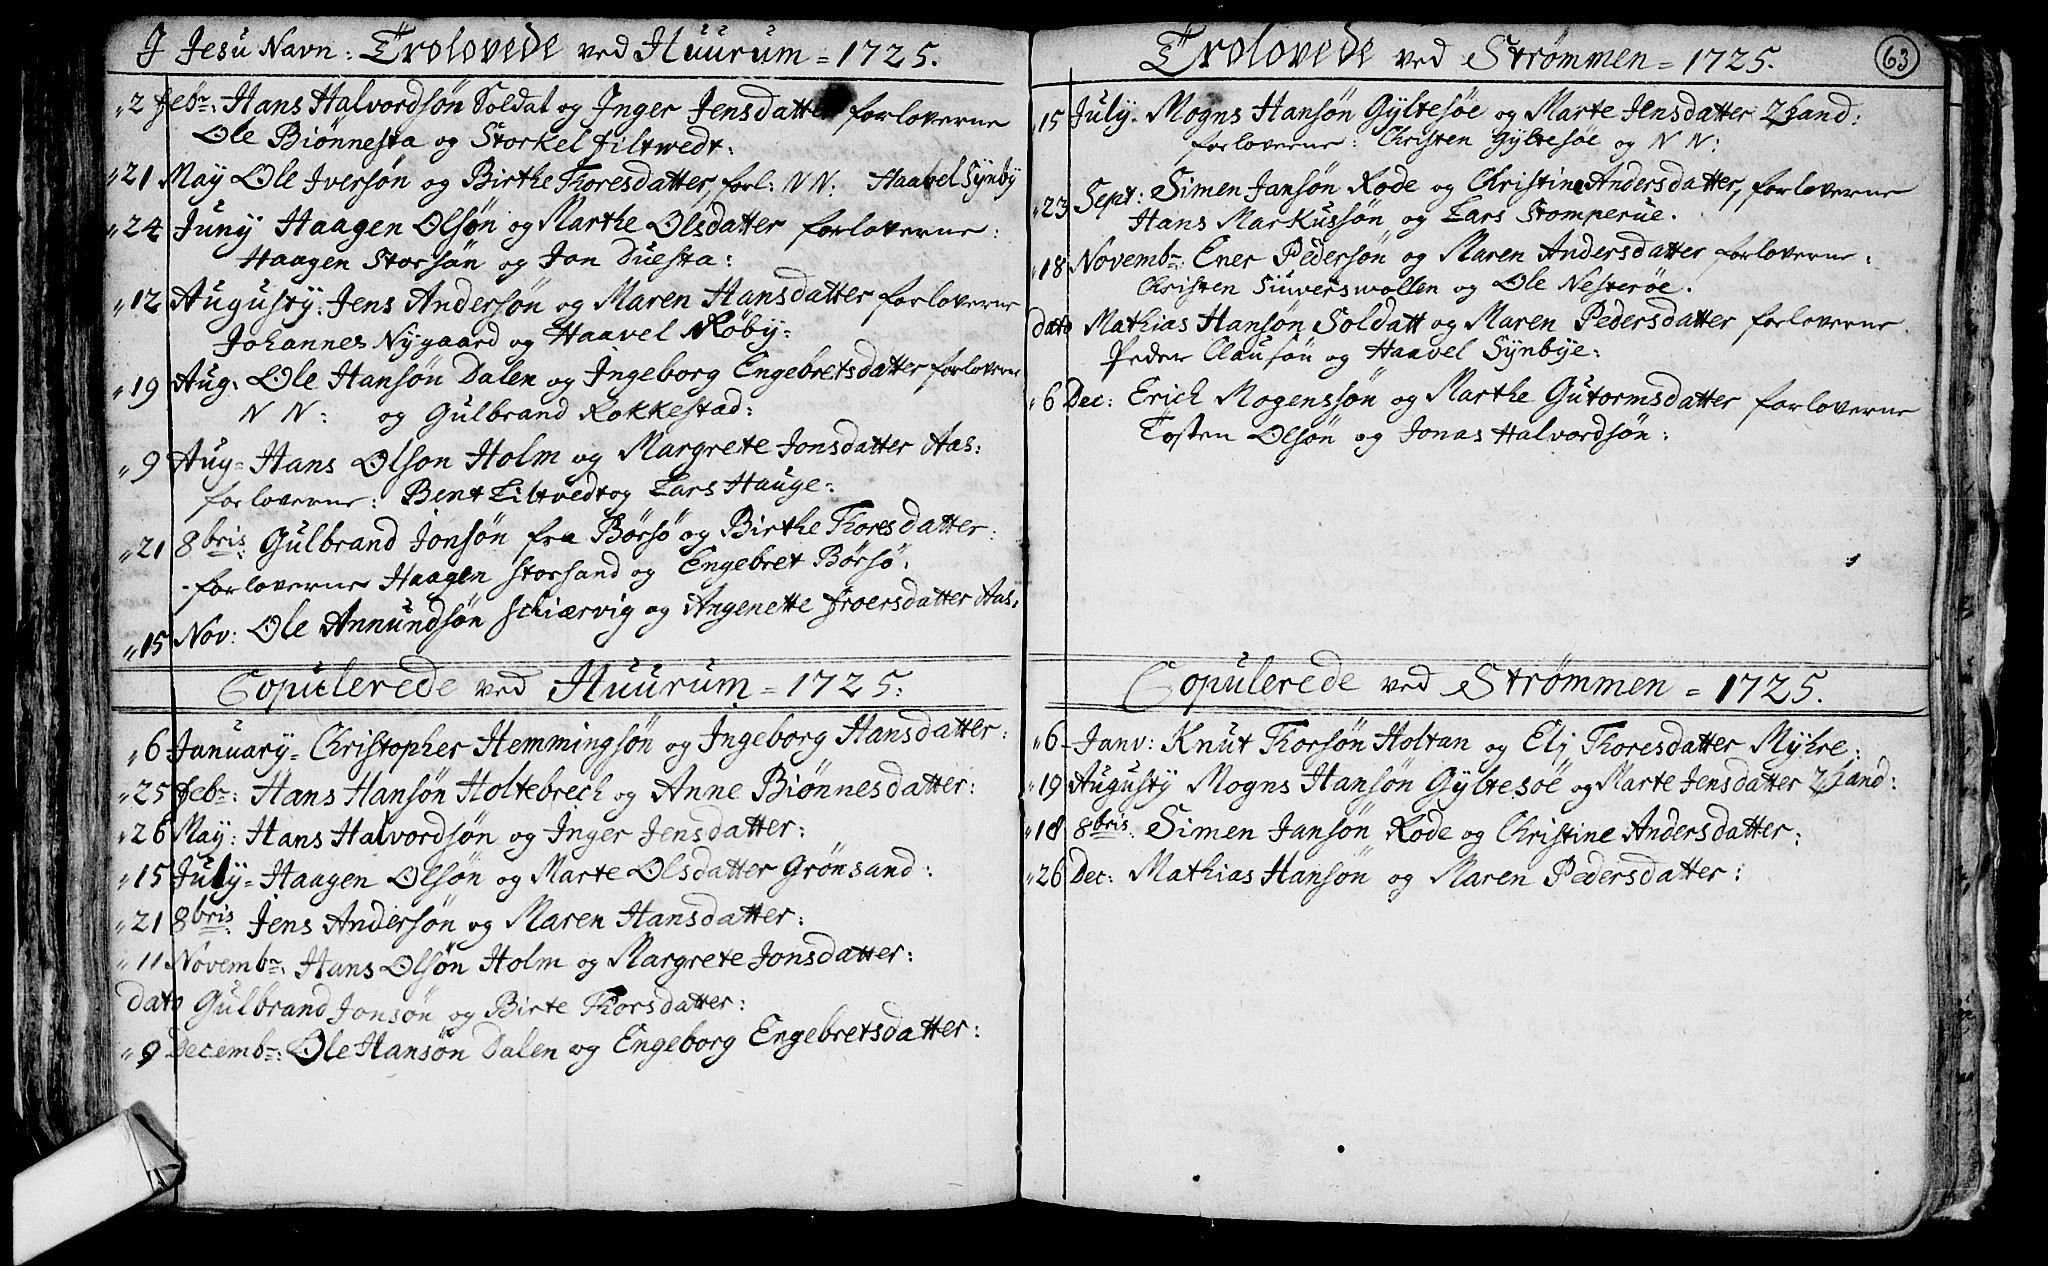 J Jesu Navn: Trolovede ved Huurum = 1725.
2 Febr: Hans Halvordsøn Soldat og Inger Jensdatter forloverne
Ole Biønnesta og Storkel Filtwedt:
21 May Ole Iversøn og Birthe Thoresdatter, forl: NN: Haavel Synby
24 Juny Haagen Olsøn og Marthe Olsdatter forloverne:
Haagen Storsan og Jon Duesta:
12 Augusty: Jens Andersøn og Maren Hansdatter forloverne
Johannes Nygaard og Haavel Røby:
19 Aug: Ole Hansøn Dalen og Ingeborg Engebretsdatter forloverne
N N: og Gulbrand Rokkestad:
9 Aug= Hans Olson Holm og Margrete Jonsdatter Aas:
forloverne: Bent Liltvedt og Lars Hauge:
21 8bris: Gulbrand Jonsøn fra Børsø og Birthe Thoresdatter:
- forloverne Haagen Storsand og Engebret Børsø:
15 Nov: Ole Annundsøn Schiærvig og Angenette Froersdatter Aas:
Copulerede ved Huurum = 1725:
6 January= Christopher Hemmingsøn og Ingeborg Hansdatter:
25 Febr: Hans Hansøn Holtebrech og Anne Biønnesdatter:
26 May: Hans Halvordsøn og Inger Jensdatter:
15 July= Haagen Olsøn og Marte Olsdatter Grønsand:
21 8bris: Jens Andersøn og Maren Hansdatter:
11 Novembr: Hans Olsøn Holm og Margrete Jonsdatter:
dato Gulbrand Jonsøn og Birte Thorsdatter:
9 Decembr: Ole Hansøn Dalen og Engeborg Engebretsdatter:
Trolovede ved Strømmen = 1725.
63
15 July= Mogns Hansøn Gyltesøe og Marte Jensdatter
forloverne: Christen Gyltesøe og N N:
23 Sept: Simen Jansøn Rode og Christine Andersdatter, forloverne
Hans Markussøn og Lars Stomperue.
18 Novembr: Ener Pedersøn og Maren Andersdatter forloverne:
Christen Siuverswollen og Ole Nesterøe.
dato Mathias Hansøn Soldatt og Maren Pedersdatter forloverne
Peder Clausøn og Haavel Synbye:
6 Dec: Erich Mogenssøn og Marthe Gutormsdatter forloverne
Tosten Olsøn og Jonas Halvordsøn:
Copulerede ved Strømmen = 1725.
6 Janv: Knut Thorsøn Holtan og Elj Thoresdatter Myhre:
19 Augusty Mogns Hansøn Gyltesøe og Marte Jensdatter
18 8bris: Simen Jansøn Rode og Christine Andersdatter:
26 Dec: Mathias Hansøn og Maren Pedersdatter: